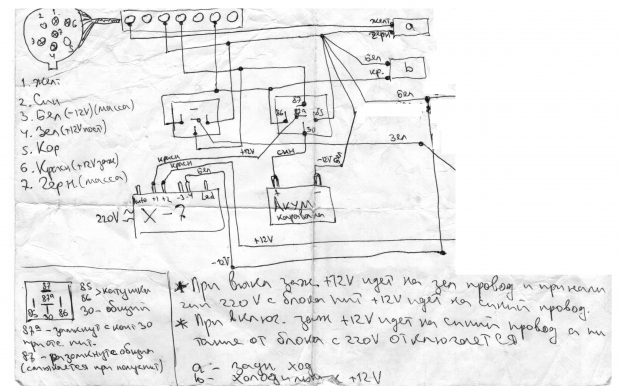 1. жел
2. Син
3. Бел (-12V) (масса)
4. Зел (+12V пост)
5. Кор
6. Красн (+12V заж)
7. Черн. (масса)
жел
черн
a
Бел
кр.
b
Бел
Зел
87
86
87а
85
30
+12V
красн
красн
Бел
син
-12V
Бел
+1 +2 -3 -4 Led
220V
X-7
+ -
Акум
каравана
+12V
-12V
87
87а
85 30 86
85
86 > катушки
30 - общий
87а - замкнут с конт 30
при отс. пит.
87 - разомкнут с общим
* При выкл заж. +12V идет на зел провод и при нали
чии 220V с блока пит +12V идет на синий провод.
* При включ. заж +12V идет на синий провод а пи
тание от блока с 220V отключается
а - задн ход
b - холодильник +12V